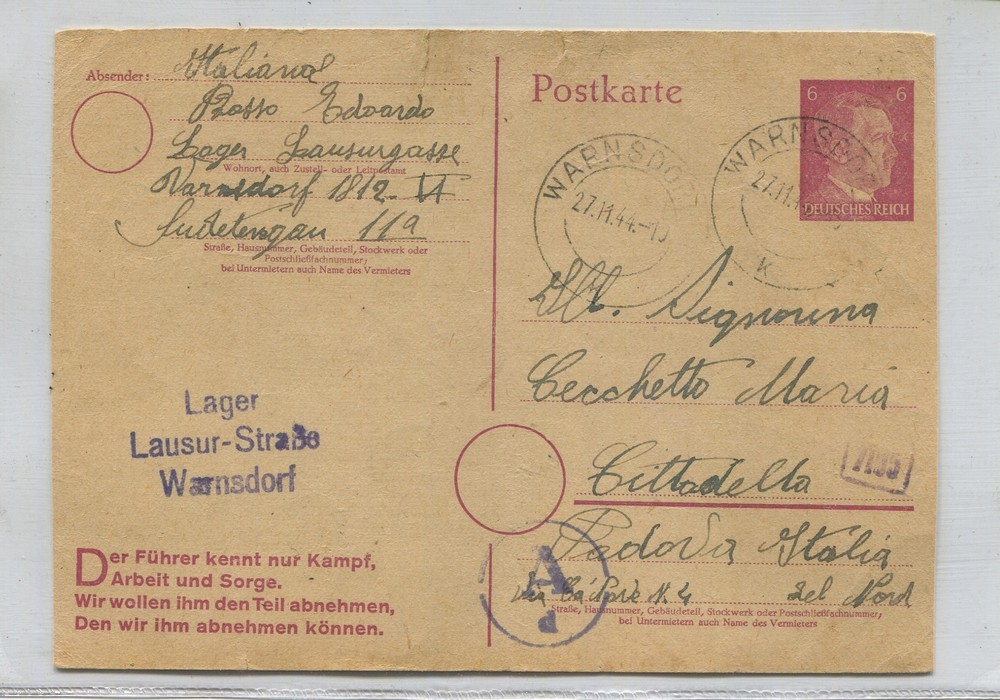 Absender: Italiana
Rosso Edoardo
Lager Lausurgasse
Wohnort, auch Zustell- oder Leitpostamt
Warnsdorf 1812 VI
Sudetengau 11a
Straße, Hausnummer, Gebäudeteil, Stockwerk oder
Postschließfachnummer;
bei Untermietern auch Name des Vermieters
Lager
Lausur-Straße
Warnsdorf
Der Führer kennt nur Kampf,
Arbeit und Sorge.
Wir wollen ihm den Teil abnehmen,
Den wir ihm abnehmen können.
Postkarte
6 6
DEUTSCHES REICH
WARNSDORF
27.11.44.-10
WARNSDORF
27.11.4
K
Signorina
Cecchetto Maria
Cittadella
7135
Padova Italia
Via Cá N. 4 del Nord
Straße, Hausnummer, Gebäudeteil, Stockwerk oder Postschließfachnummer;
bei Untermietern auch Name des Vermieters
A
d